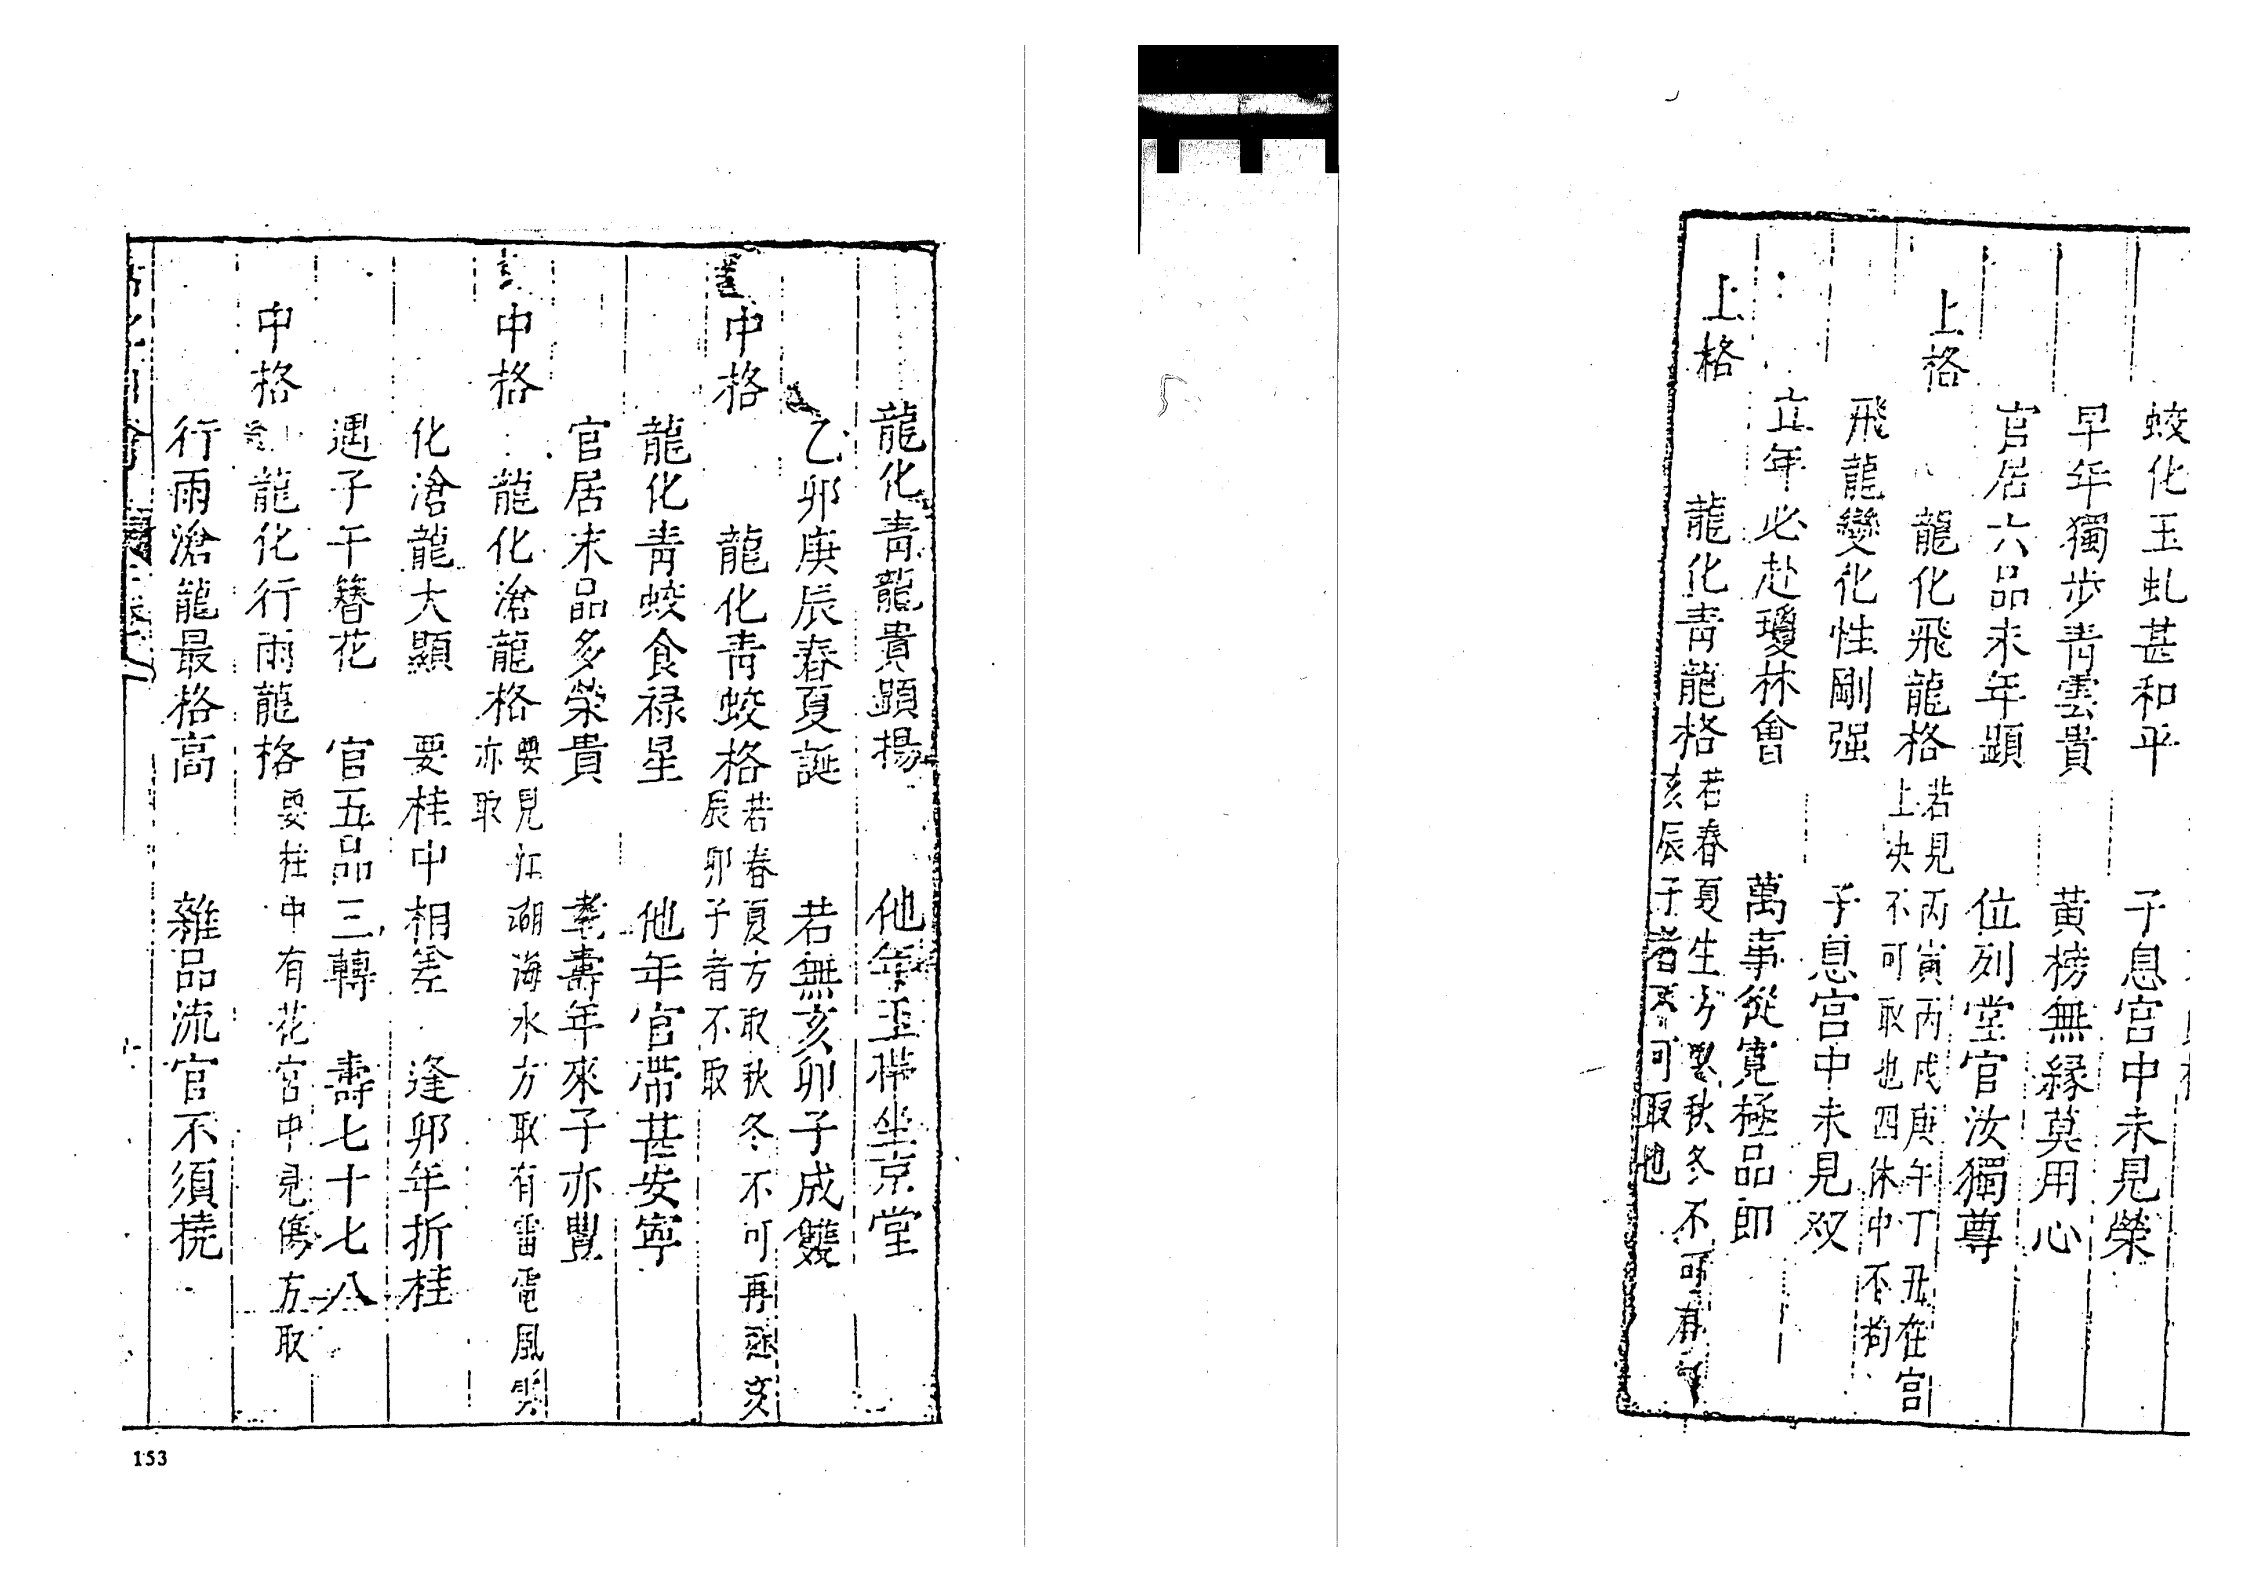 蛟化玉虬甚和平 子息宮中未見榮
早年獨步青雲貴 黃榜無緣莫用心
官居六品末年顯 位列堂官汝獨尊
上格 龍化飛龍格 若見丙寅丙戌庚午丁丑在宮
上央不可取也四休中不拘
飛龍變化性剛强 子息宮中未見双
立年必赴瓊林會 萬事從寬極品即
上格 龍化青龍格 若春夏生方取秋冬不可再
亥辰子者不可取也
龍化青龍貴顕揚 他年玉帶坐京堂
乙卯庚辰春夏誕 若無亥卯子成雙
中格 龍化青蛟格 若春夏方取秋冬不可再逐亥
辰卯子者不取
龍化青蛟食禄星 他年官帶甚安寧
官居末品多榮貴 耄壽年來子亦豐
中格 龍化滄龍格 要見江湖海水方取有雷電風
亦取
化滄龍大顯 要桂中相差 逢卯年折桂
遇子午簪花 官五品三轉 壽七十七八
中格 龍化行雨龍格 要柱中有花宮中見傷方取
行雨滄龍最格高 雜品流官不須撓
153